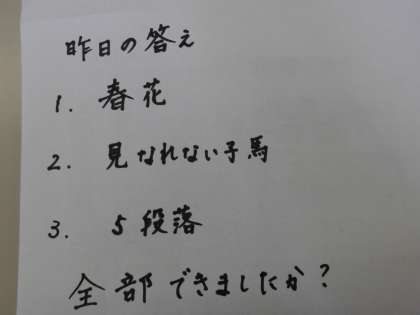 昨日の答え
1. 春花
2. 見なれない子馬
3. 5段落
全部できましたか?